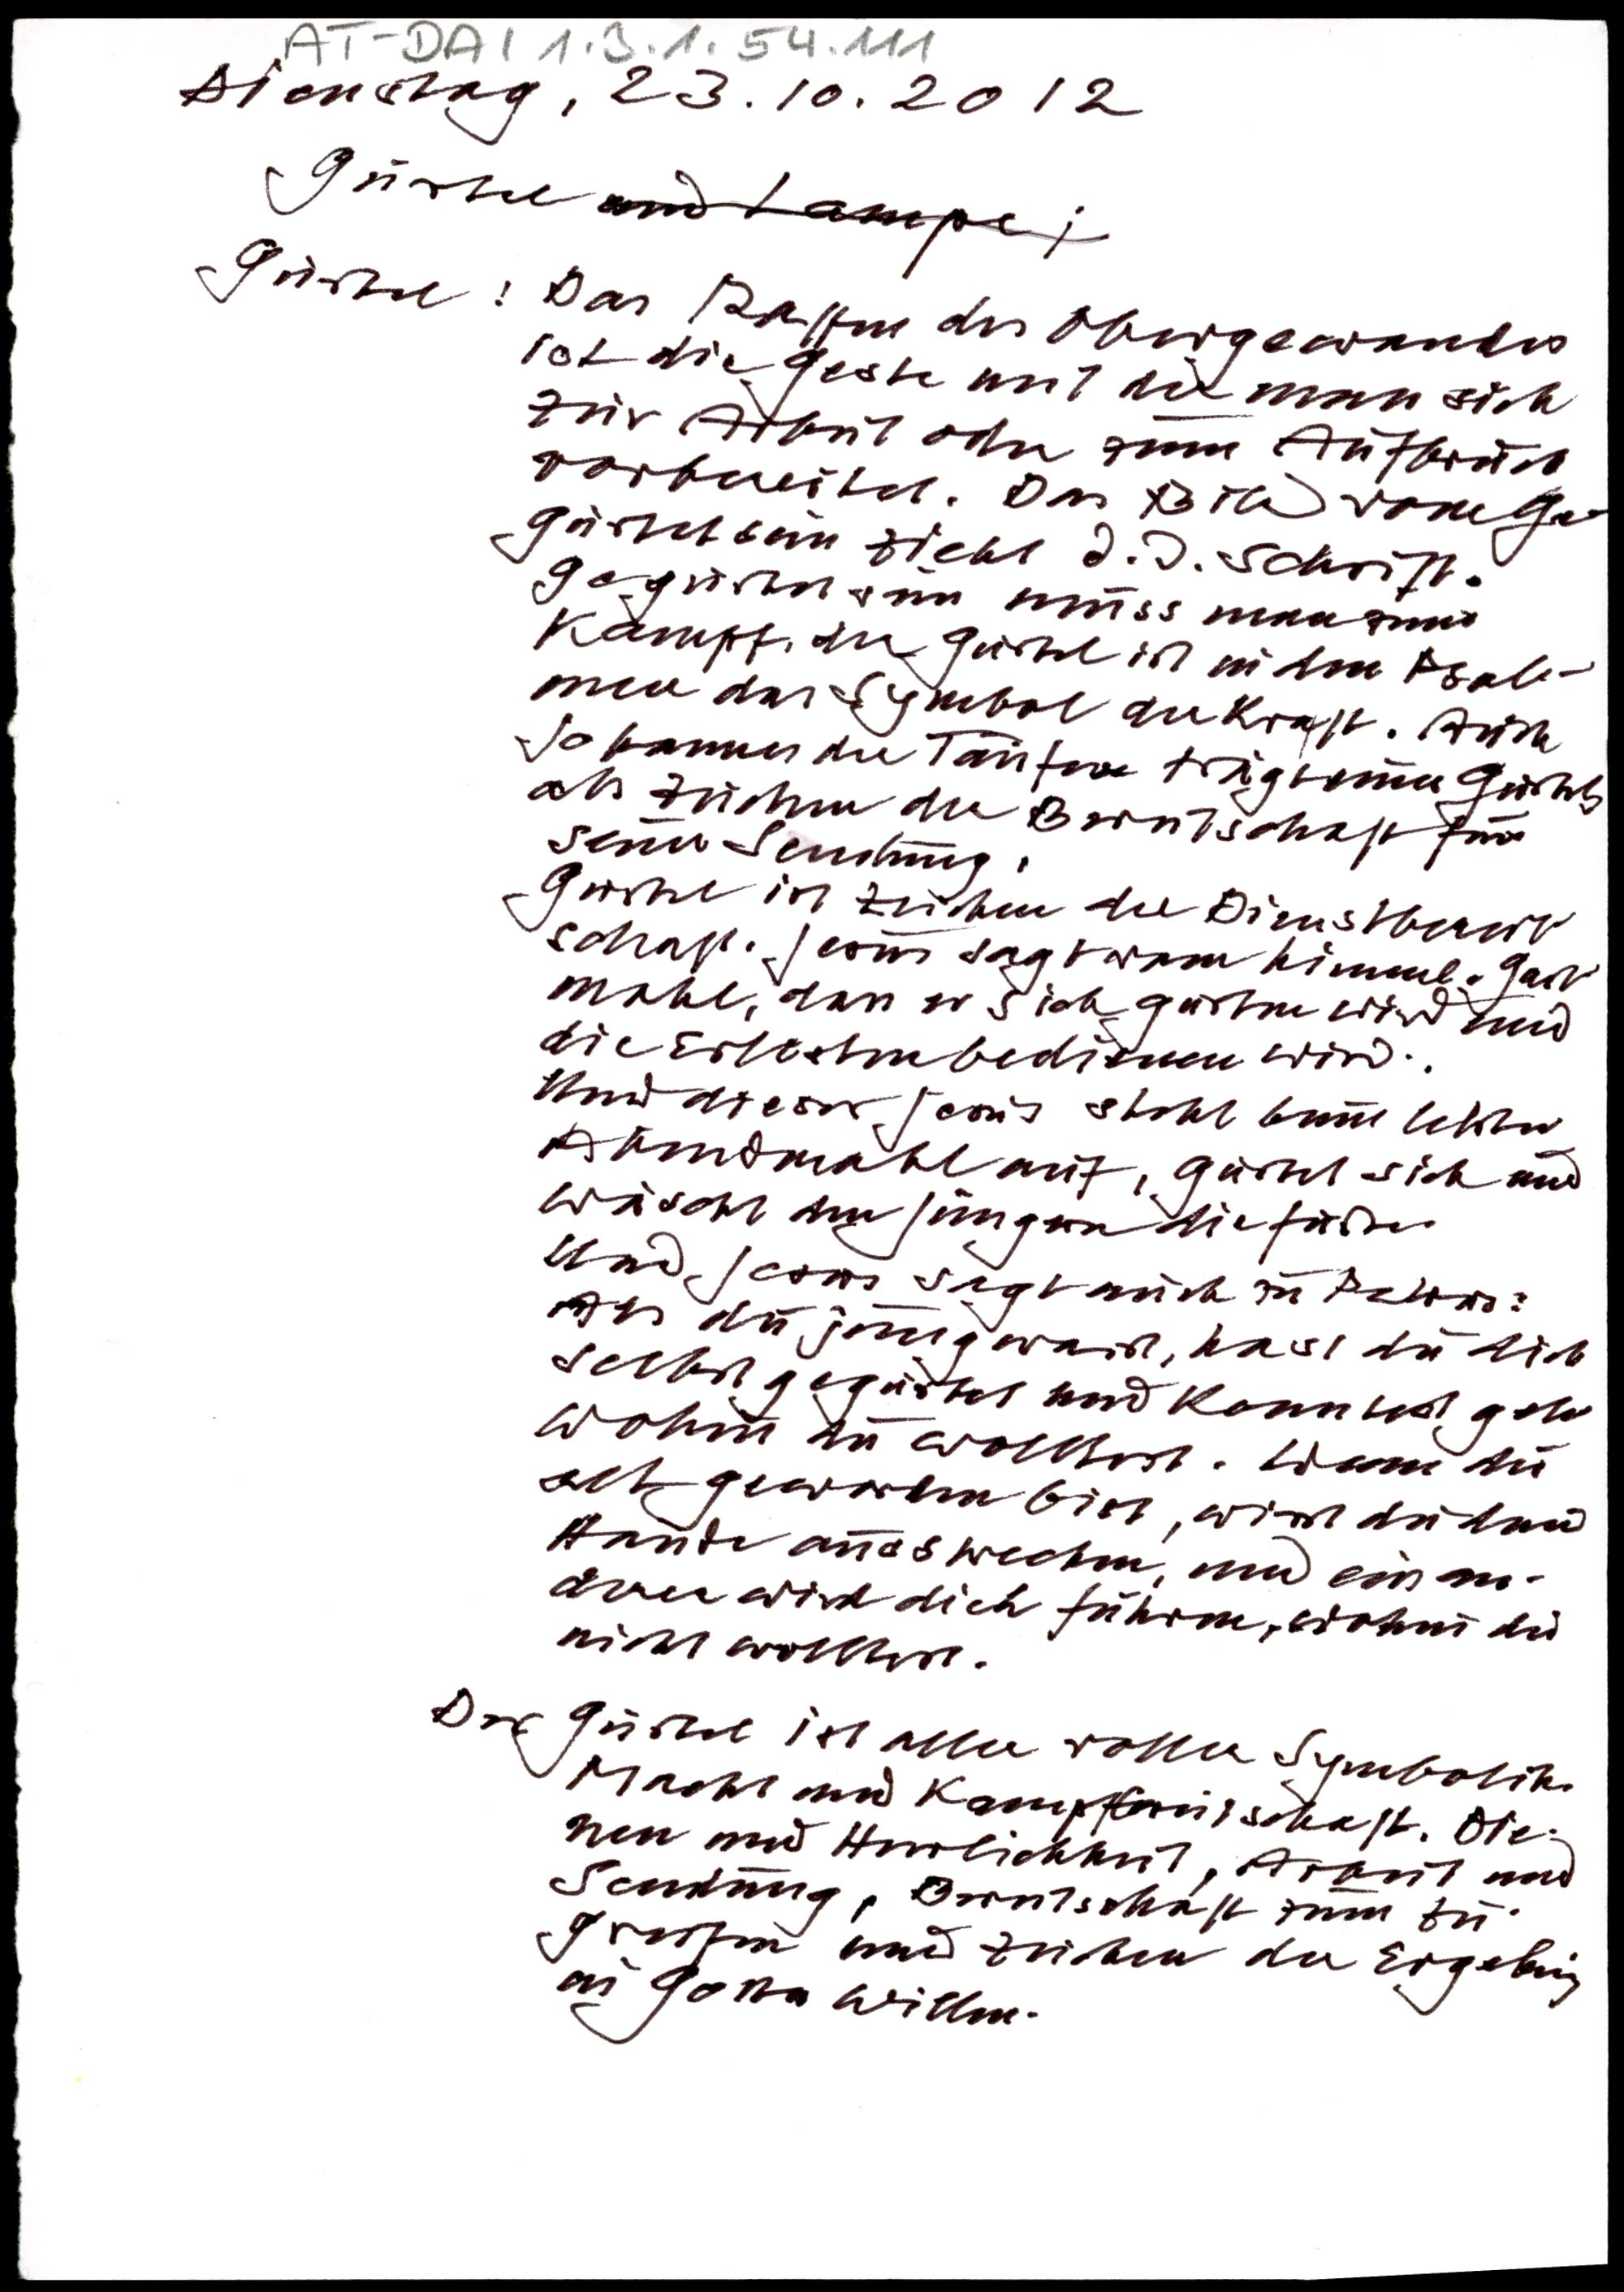 AT-DAI 1.3.1.54.111
Dienstag, 23.10.2012
Gürtel und Lampe;
Gürtel: Das Raffen des Obergewandes
ist die Geste mit der man sich
zur Arbeit oder zum Aufbruch
vorbereitet. Das Bild vom Ge-
gürtetsein zieht d. d. Schrift.
Gegürtet sein muss man zum
Kampf, der Gürtel ist in den Psal-
men das Symbol der Kraft. Auch
Johannes der Täufer trägt einen Gürtel,
als Zeichen der Bereitschaft für
seine Sendung.
Gürtel ist Zeichen der Dienstbereit
schaft. Jesus sagt vom himml. Gast
mahl, dass er sich gürten wird und
die Erlösten bedienen wird.
Und dieser Jesus steht beim letzten
Abendmahl auf, gürtet sich und
wäscht den Jüngern die Füsse.
Und Jesus sagt auch zu Petrus:
Als du jung warst, hast du dich
selbst gegürtet und konntest gehen
wohin du wolltest. Wenn du
alt geworden bist, wirst du deine
Hände ausstrecken, und ein an-
derer wird dich führen, wohin du
nicht wolltest.
Der Gürtel ist aller voller Symbolik.
Macht und Kampfbereitschaft. Die-
nen und Herrlichkeit, Arbeit und
Sendung, Bereitschaft zum Zu-
greifen und Zeichen der Ergebung
in Gottes Willen.